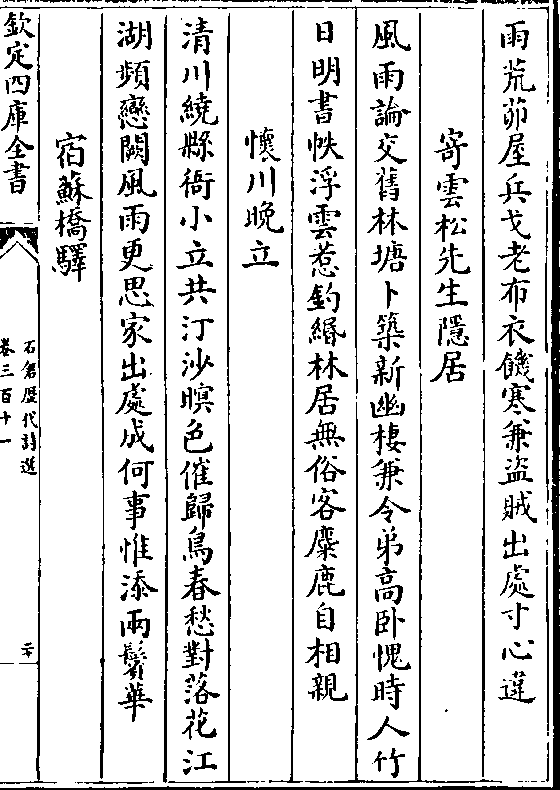 雨荒茆屋兵戈老布衣饑寒兼盜賊出處寸心違
寄雲松先生隱居
風雨論交舊林塘卜築新幽棲兼令弟高卧愧時人竹
日明書帙浮雲惹釣緡林居無俗客麋鹿自相親
懷川晚立
清川繞縣衙小立共汀沙暝色催歸鳥春愁對落花江
湖頻戀闕風雨更思家出處成何事惟添兩鬢華
宿蘇橋驛
欽定四庫全書
石倉歷代詩選
卷三百十一
二十